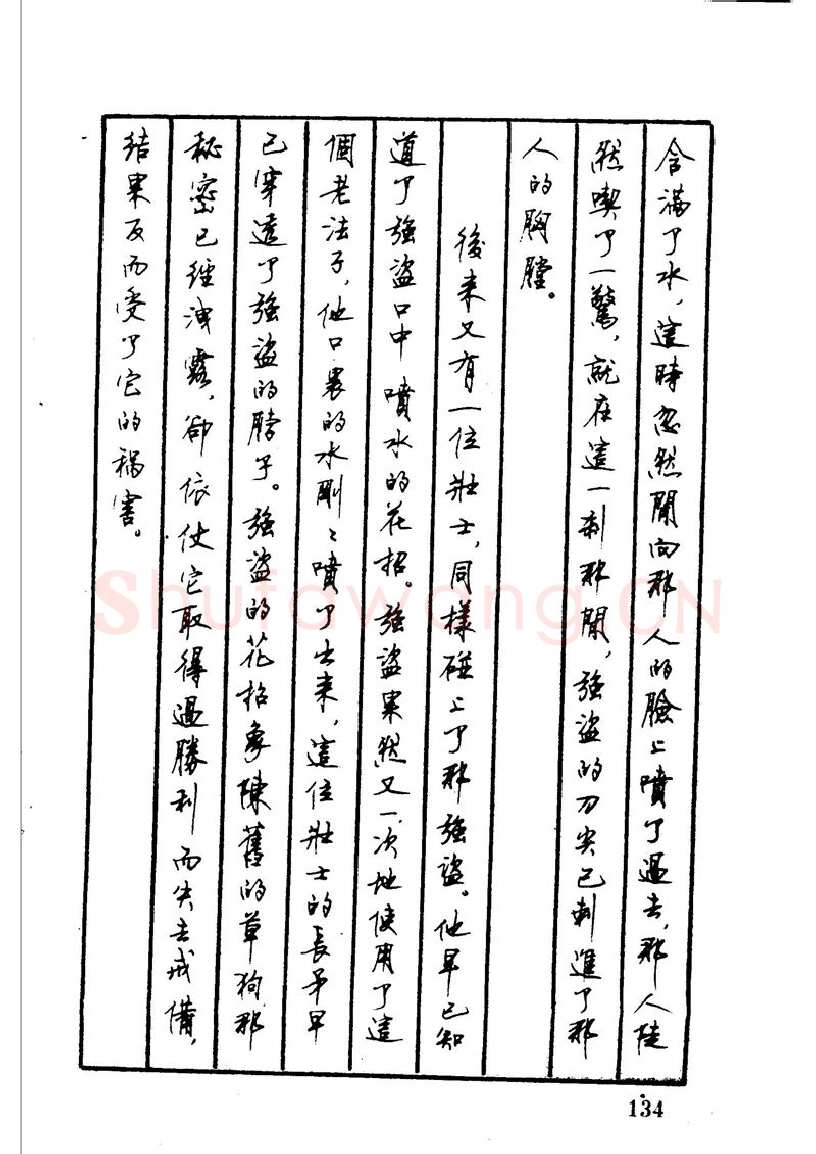 含滿了水，這時忽然間向那人的臉上噴了過去，那人陡
然喫了一驚，就在這一剎那間，強盜的刀尖已刺進了那
人的胸膛。
後來又有一位壯士，同樣碰上了那強盜。他早已知
道了強盜口中噴水的花招。強盜果然又一次地使用了這
個老法子，他口裏的水剛〻噴了出來，這位壯士的長矛早
已穿透了強盜的脖子。強盜的花招象陳舊的草狗那
秘密已經洩露，卻依仗它取得過勝利而失去戒備，
結果反而受了它的禍害。
134
Shufawang.CN